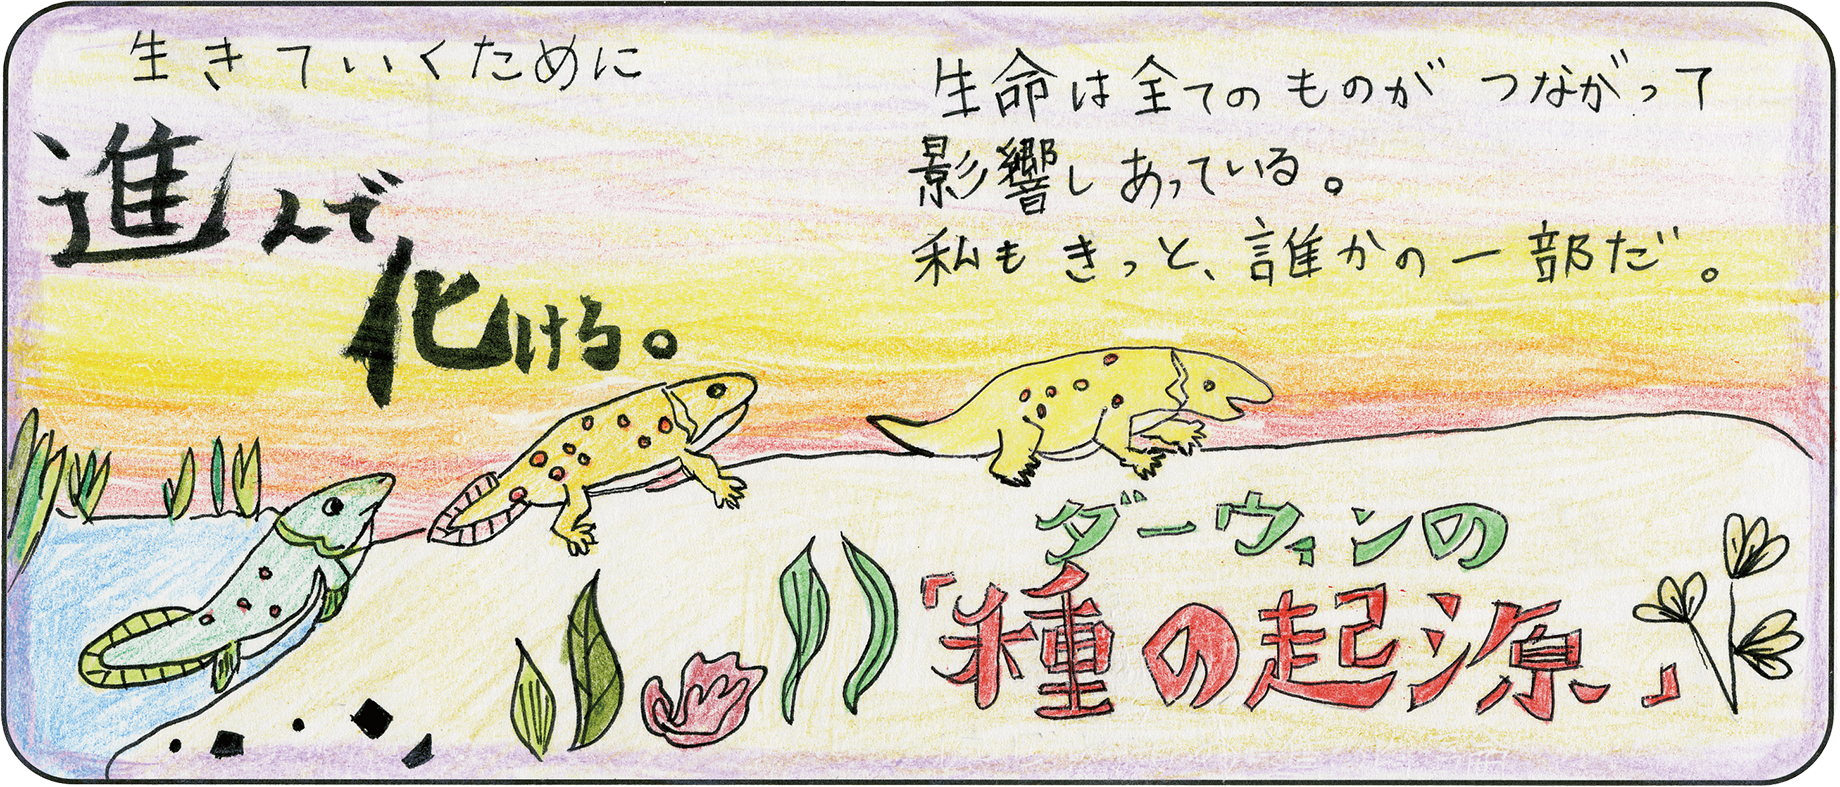 生きていくために
進んで
化ける。
生命は全てのものがつながって
影響しあっている。
私もきっと、誰かの一部だ。
ダーウィンの
「種の起源」